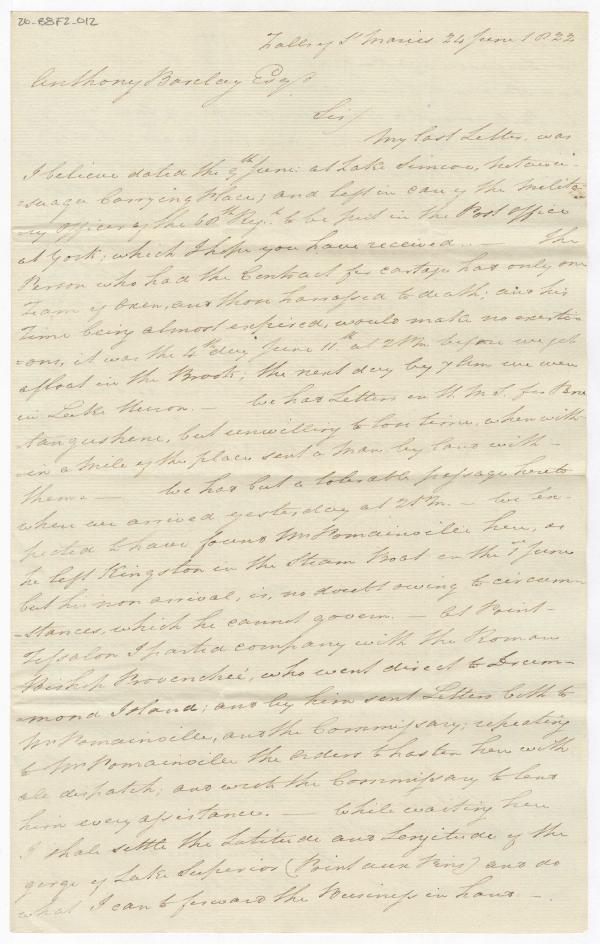 20-BBF2-012
Falls of St Maries 24 June 1822
Anthony Barclay Esqr
Sir/
My last Letter was
I believe dated the 9th June: at Lake Simcoe,
-suaga Carrying Place; and left in care of the Milita-
-ry Officer of the 68th Regt. to be put in the Post Office
at York; which I hope you have received. — The
Person who had the Contract for cartage has only one
Team of Oxen, and those harassed to death; and his
Time being almost expired, would make no exerti-
-ons, it was the 4th day June 11th at 2 PM before we got
afloat in the Brook; the next day by 7 AM we were
in Lake Huron. — We had Letters on H.M.S. for Pene
-tangushene, but unwilling to lose time, when with-
-in a mile of the place sent a Man by land with
them. — We had but a tolerable passage hereto
when we arrived yesterday at 2 PM. — We ex-
pected to have found Mr Pomainville here, as
he left Kingston in the Steam Boat on the 1st June
but his non arrival, is, no doubt owing to circum-
-stances, which he cannot govern. — At Point
Tessalon I parted company with the Roman
Bishop Provenchée, who went direct to Drum-
-mond Island; and by him sent Letters both to
Mr Pomainville, and the Commissary; repeating
to Mr Pomainville the orders to hasten here with
all dispatch; and with the Commissary to lend
him every assistance. — While waiting here
I shall settle the Latitude and Longitude of the
gorge of Lake Superior (Point aux Pins) and do
what I can to forward the Business in hand —